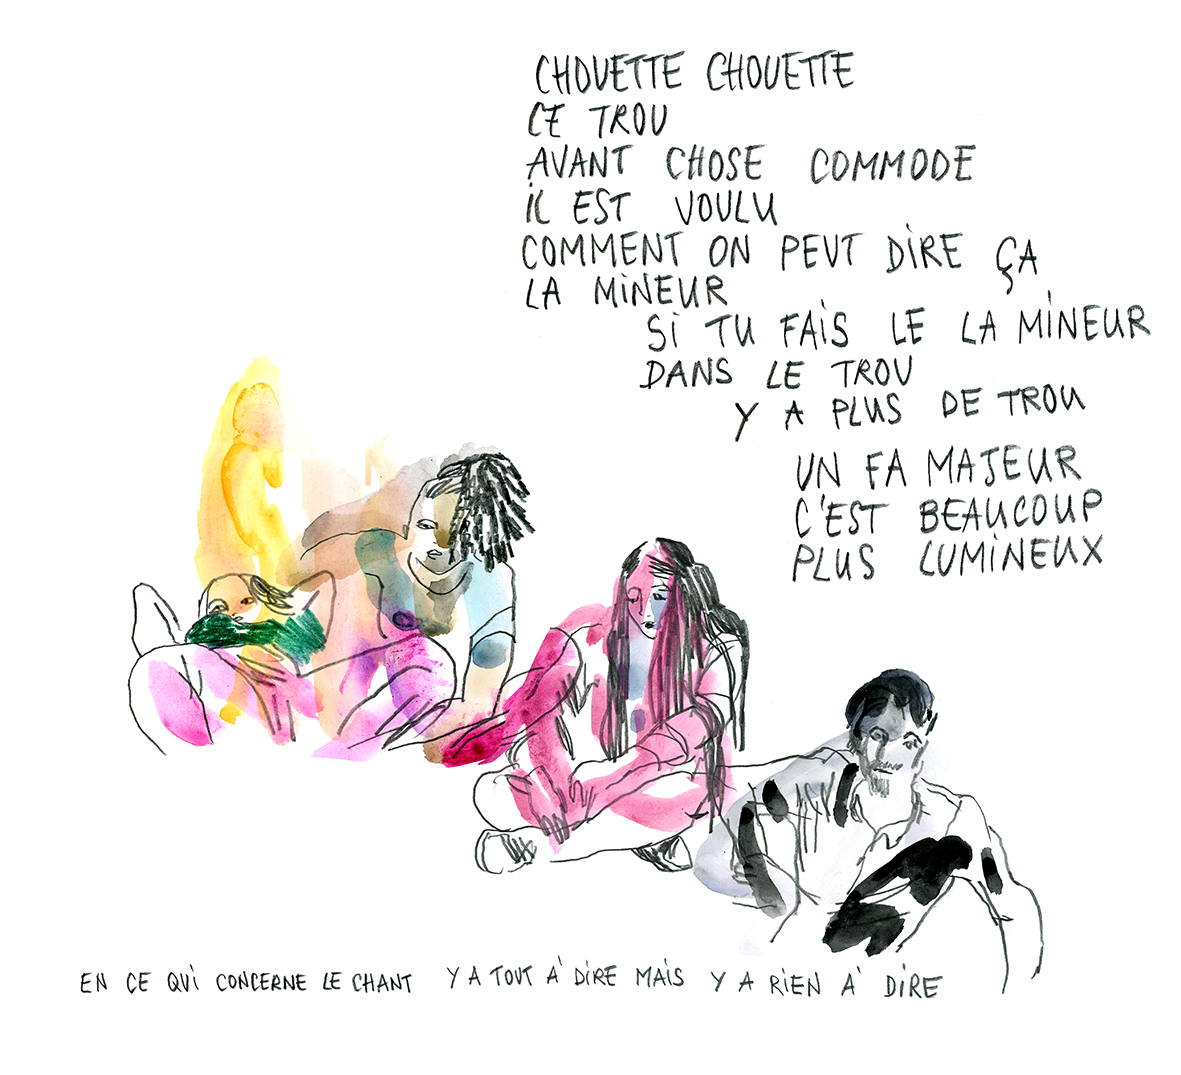 CHOUETTE CHOUETTE
CE TROU
AVANT CHOSE COMMODE
IL EST VOULU
COMMENT ON PEUT DIRE ÇA
LA MINEUR
SI TU FAIS LE LA MINEUR
DANS LE TROU
Y A PLUS DE TROU
UN FA MAJEUR
C'EST BEAUCOUP
PLUS LUMINEUX
EN CE QUI CONCERNE LE CHANT Y A TOUT À DIRE MAIS Y A RIEN À DIRE